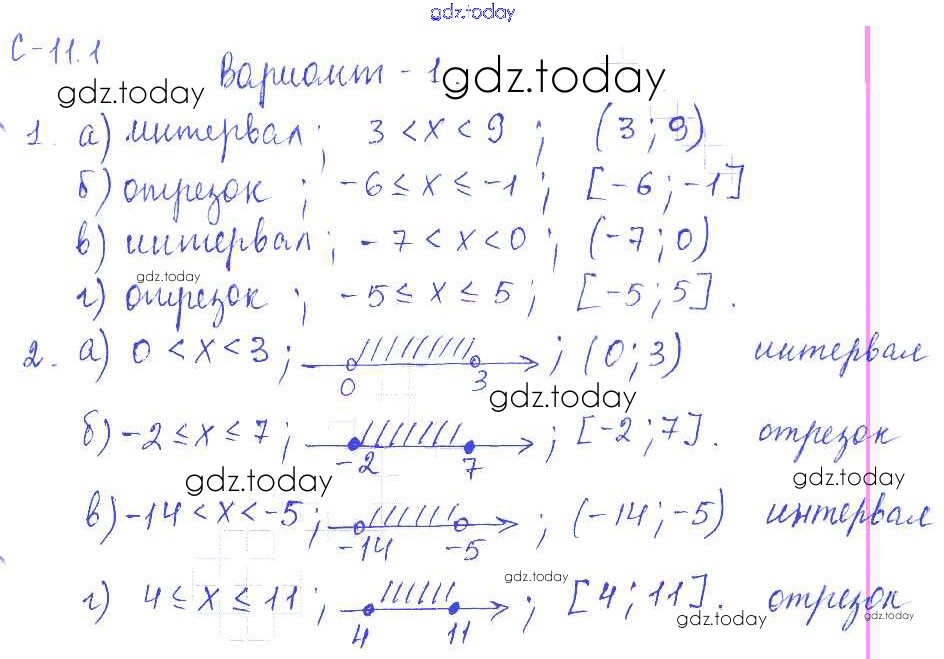 gdz.today
С-11.1
Вариант - 1. gdz.today
gdz.today
1. а) интервал ; 3 < x < 9 ; (3 ; 9)
б) отрезок ; -6 ≤ x ≤ -1 ; [-6 ; -1]
в) интервал ; -7 < x < 0 ; (-7 ; 0)
gdz.today
г) отрезок ; -5 ≤ x ≤ 5 ; [-5 ; 5] .
2. а) 0 < x < 3 ; 0 3 ; (0 ; 3) интервал
gdz.today
б) -2 ≤ x ≤ 7 ; -2 7 ; [-2 ; 7] . отрезок
gdz.today gdz.today
в) -14 < x < -5 ; -14 -5 ; (-14 ; -5) интервал
gdz.today
г) 4 ≤ x ≤ 11 ; 4 11 ; [4 ; 11] . отрезок
gdz.today gdz.today